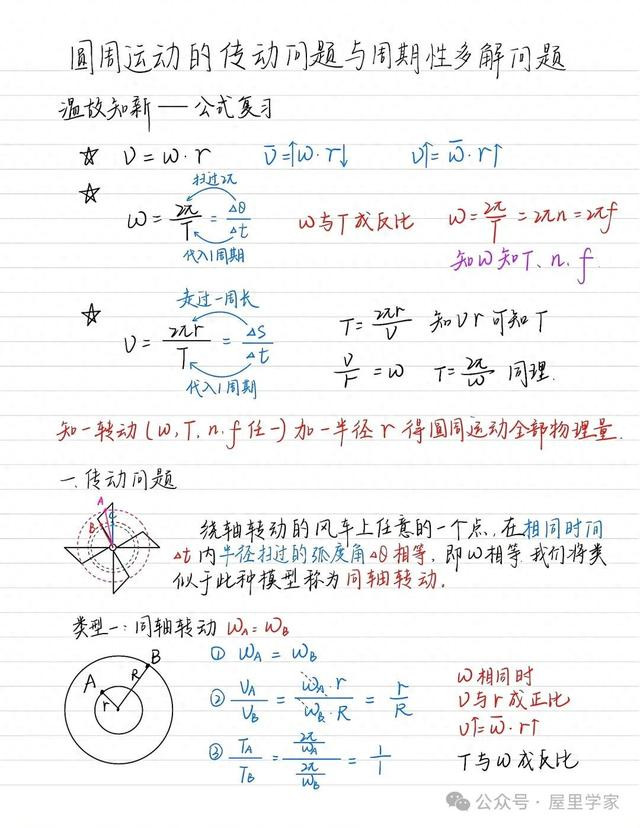 圆周运动的传动问题与周期性多解问题
温故知新——公式复习
☆ v = ω·r  v̄=↑ω·r↓  v↑=ω̄·r↑
☆ 扫过2π
ω = 2π/T = Δθ/Δt  ω与T成反比  ω = 2π/T = 2πn = 2πf
代入1周期
知ω知T、n、f
☆ 走过一周长
v = 2πr/T = Δs/Δt  T = 2πr/v 知v r可知T
代入1周期
v/r = ω  T = 2π/ω 同理.
知一转动(ω,T,n,f任一)加一半径r得圆周运动全部物理量.
一.传动问题
A
B
C
绕轴转动的风车上任意的一个点,在相同时间
Δt内半径扫过的弧度角Δθ相等,即ω相等.我们将类
似于此种模型称为同轴转动.
类型一:同轴转动 ωA=ωB
A B
r R
① ωA = ωB
② vA/vB = ωA·r/ωB·R = r/R
③ TA/TB = (2π/ωA)/(2π/ωB) = 1/1
ω相同时
v与r成正比
v↑=ω̄·r↑
T与ω成反比
公众号·屋里学家